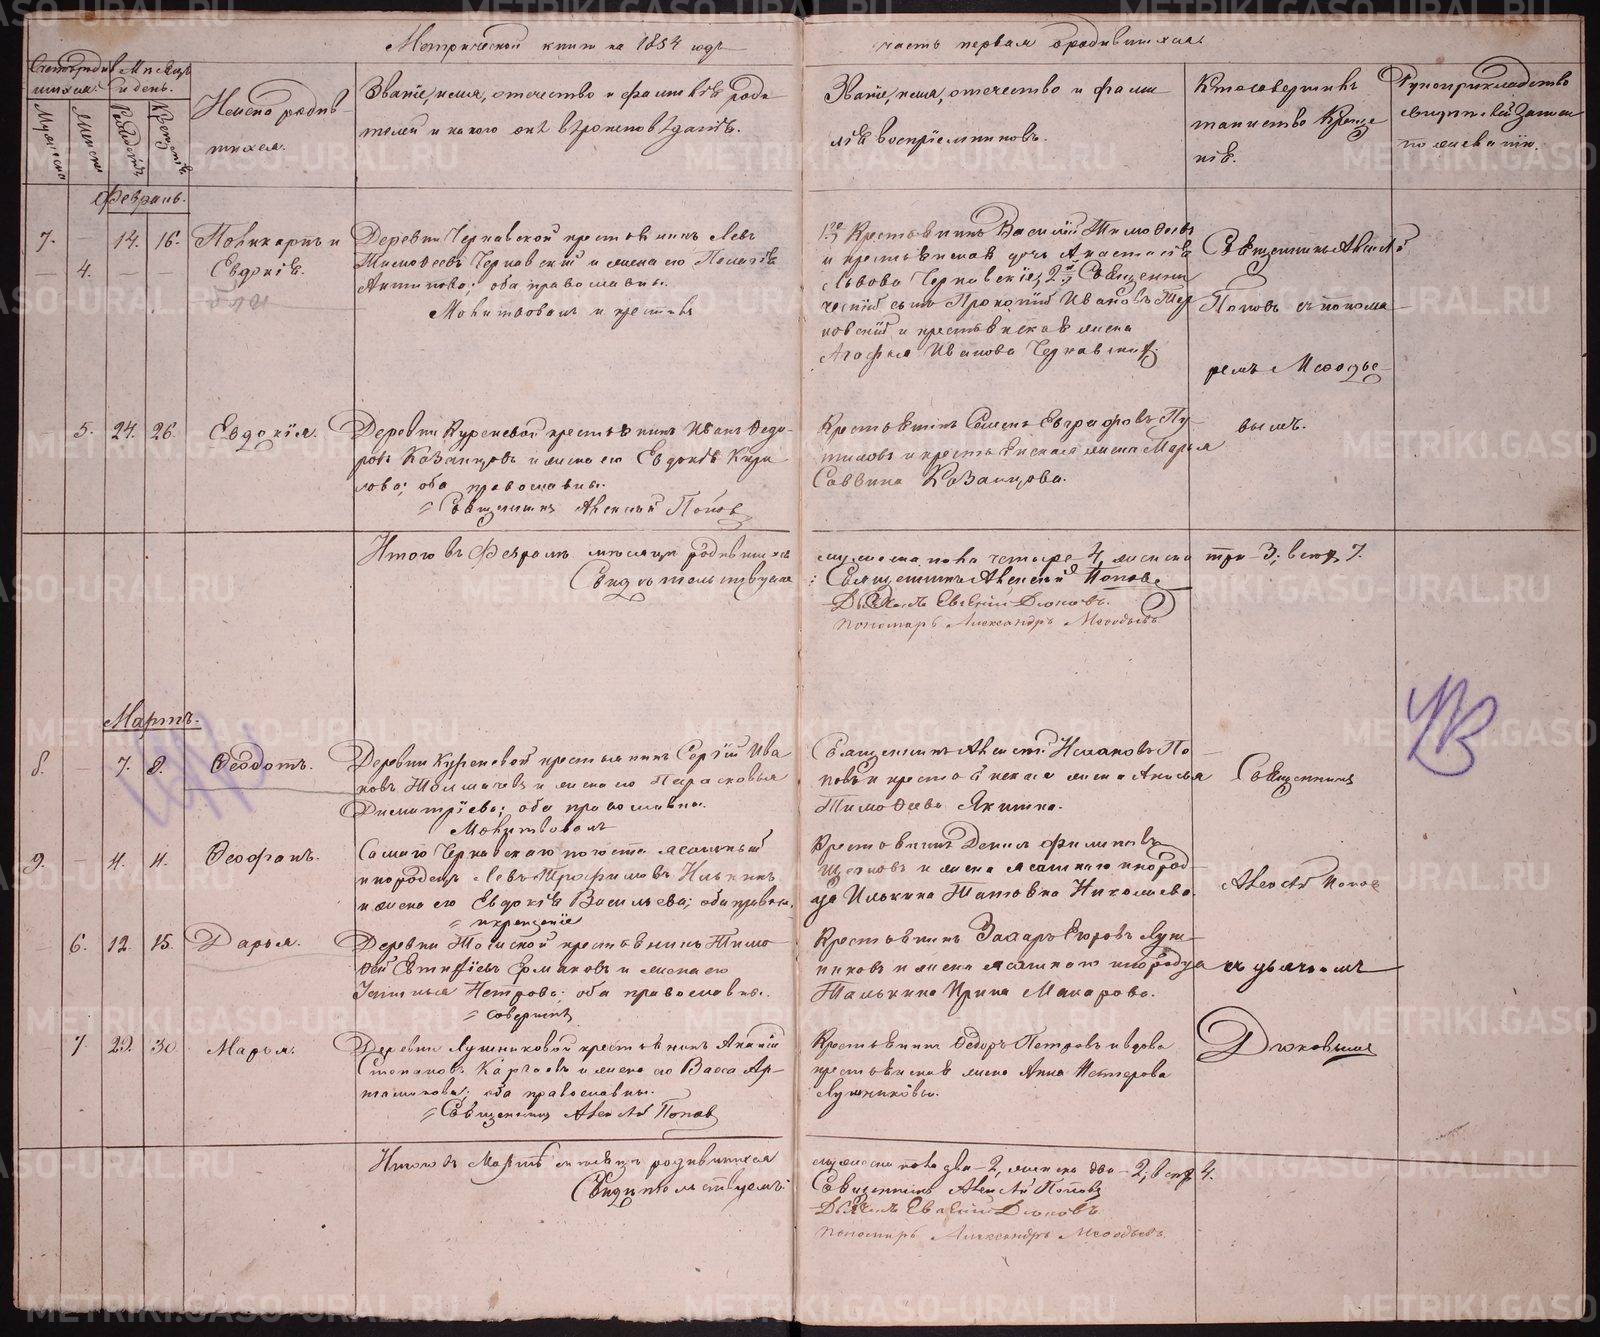 Метрической книги на 1854 годъ
часть первая о родившихся.
Счетъ родив
шихся.
Мѣсяцъ
и день.
Мужеска
Женска
Рожденія
Крещенія
Имена родив
шихся.
Званіе, имя, отечество и фамилія роди
телей и какого они вѣроисповѣданія.
Званіе, имя, отечество и фами
лія воспріемниковъ.
Кто совершилъ
таинство Креще
нія.
Рукоприкладство
свидѣтелей записи
по желанію.
Февраль.
7. — 14. 16. Поликарпъ и
— 4. — — Евдокія.
Деревни Чернавской крестьянинъ Левъ
Тимоѳеевъ Чернавскій и жена его Пелагія
Антипова; оба православны.
Молитвовалъ и крестилъ
1е Крестьянинъ Василій Тимоѳеевъ
и крестьянская дочь Анастасія
Львова Чернавскіе, 2е Священни
ческій сынъ Прокопій Ивановъ
и крестьянская жена
Агафья Иванова Чернавская.
Священникъ Алексѣй
Поповъ съ понома
ремъ Меѳодье
вымъ.
5. 24. 26. Евдокія.
Деревни Куреневой крестьянинъ Иванъ Ѳедо-
ровъ Казанцовъ и жена его Евдокія Кири
лова; оба православны.
Священникъ Алексѣй Поповъ
Крестьянинъ Семенъ Евграфовъ Пу-
тиловъ и крестьянская жена Марья
Саввина Казанцова.
Итого въ Февралѣ мѣсяцѣ родившихся
мужеска пола четыре 4, женска три 3; всего 7.
Свидѣтельствуемъ:
Священникъ Алексѣй Поповъ
Дьячекъ Евгеній Дюковъ.
Пономарь Александръ Меѳодьевъ
Мартъ.
8. — 7. 8. Ѳеодотъ.
Деревни Куреневой крестьянинъ Сергій Ива
новъ Толмачевъ и жена его Парасковья
Димитріева; оба православны.
Молитвовалъ
Священникъ Алексѣй Исааковъ По
повъ и крестьянская жена Анисья
Тимоѳеева
Священникъ
9. — 4. 4. Ѳеофанъ.
Самаго Чернавскаго погоста ясашный
инородецъ Левъ Трофимовъ Илькинъ
и жена его Евдокія Васильева; оба правосл.
и крещеніе
Крестьянинъ Данилъ Филиповъ
и жена ясашнаго инород-
ца Илькина Татьяна Николаева.
Алексѣй Поповъ
6. 12. 15. Дарья.
Деревни крестьянинъ Тимо
ѳей Ермаковъ и жена его
Устинья Петрова; оба православны.
совершилъ
Крестьянинъ Захаръ Егоровъ Луш
никовъ и жена ясашнаго инородца
Талькина Ирина Макарова.
съ дьячкомъ
7. 29. 30. Марья.
Деревни Лушниковой крестьянинъ Ананій
Степановъ Каргаевъ и жена его Васса Ар-
тамонова; оба православны.
Священникъ Алексѣй Поповъ
Крестьянинъ Ѳедоръ Петровъ и вдова
крестьянская жена Анна Нестерова
Лушниковы.
Дюковымъ
Итого въ Мартѣ мѣсяцѣ родившихся
мужеска пола два — 2, женска два — 2, всего 4.
Свидѣтельствуемъ:
Священникъ Алексѣй Поповъ
Дьячекъ Евгеній Дюковъ.
Пономарь Александръ Меѳодьевъ.
METRIKI.GASO-URAL.RU